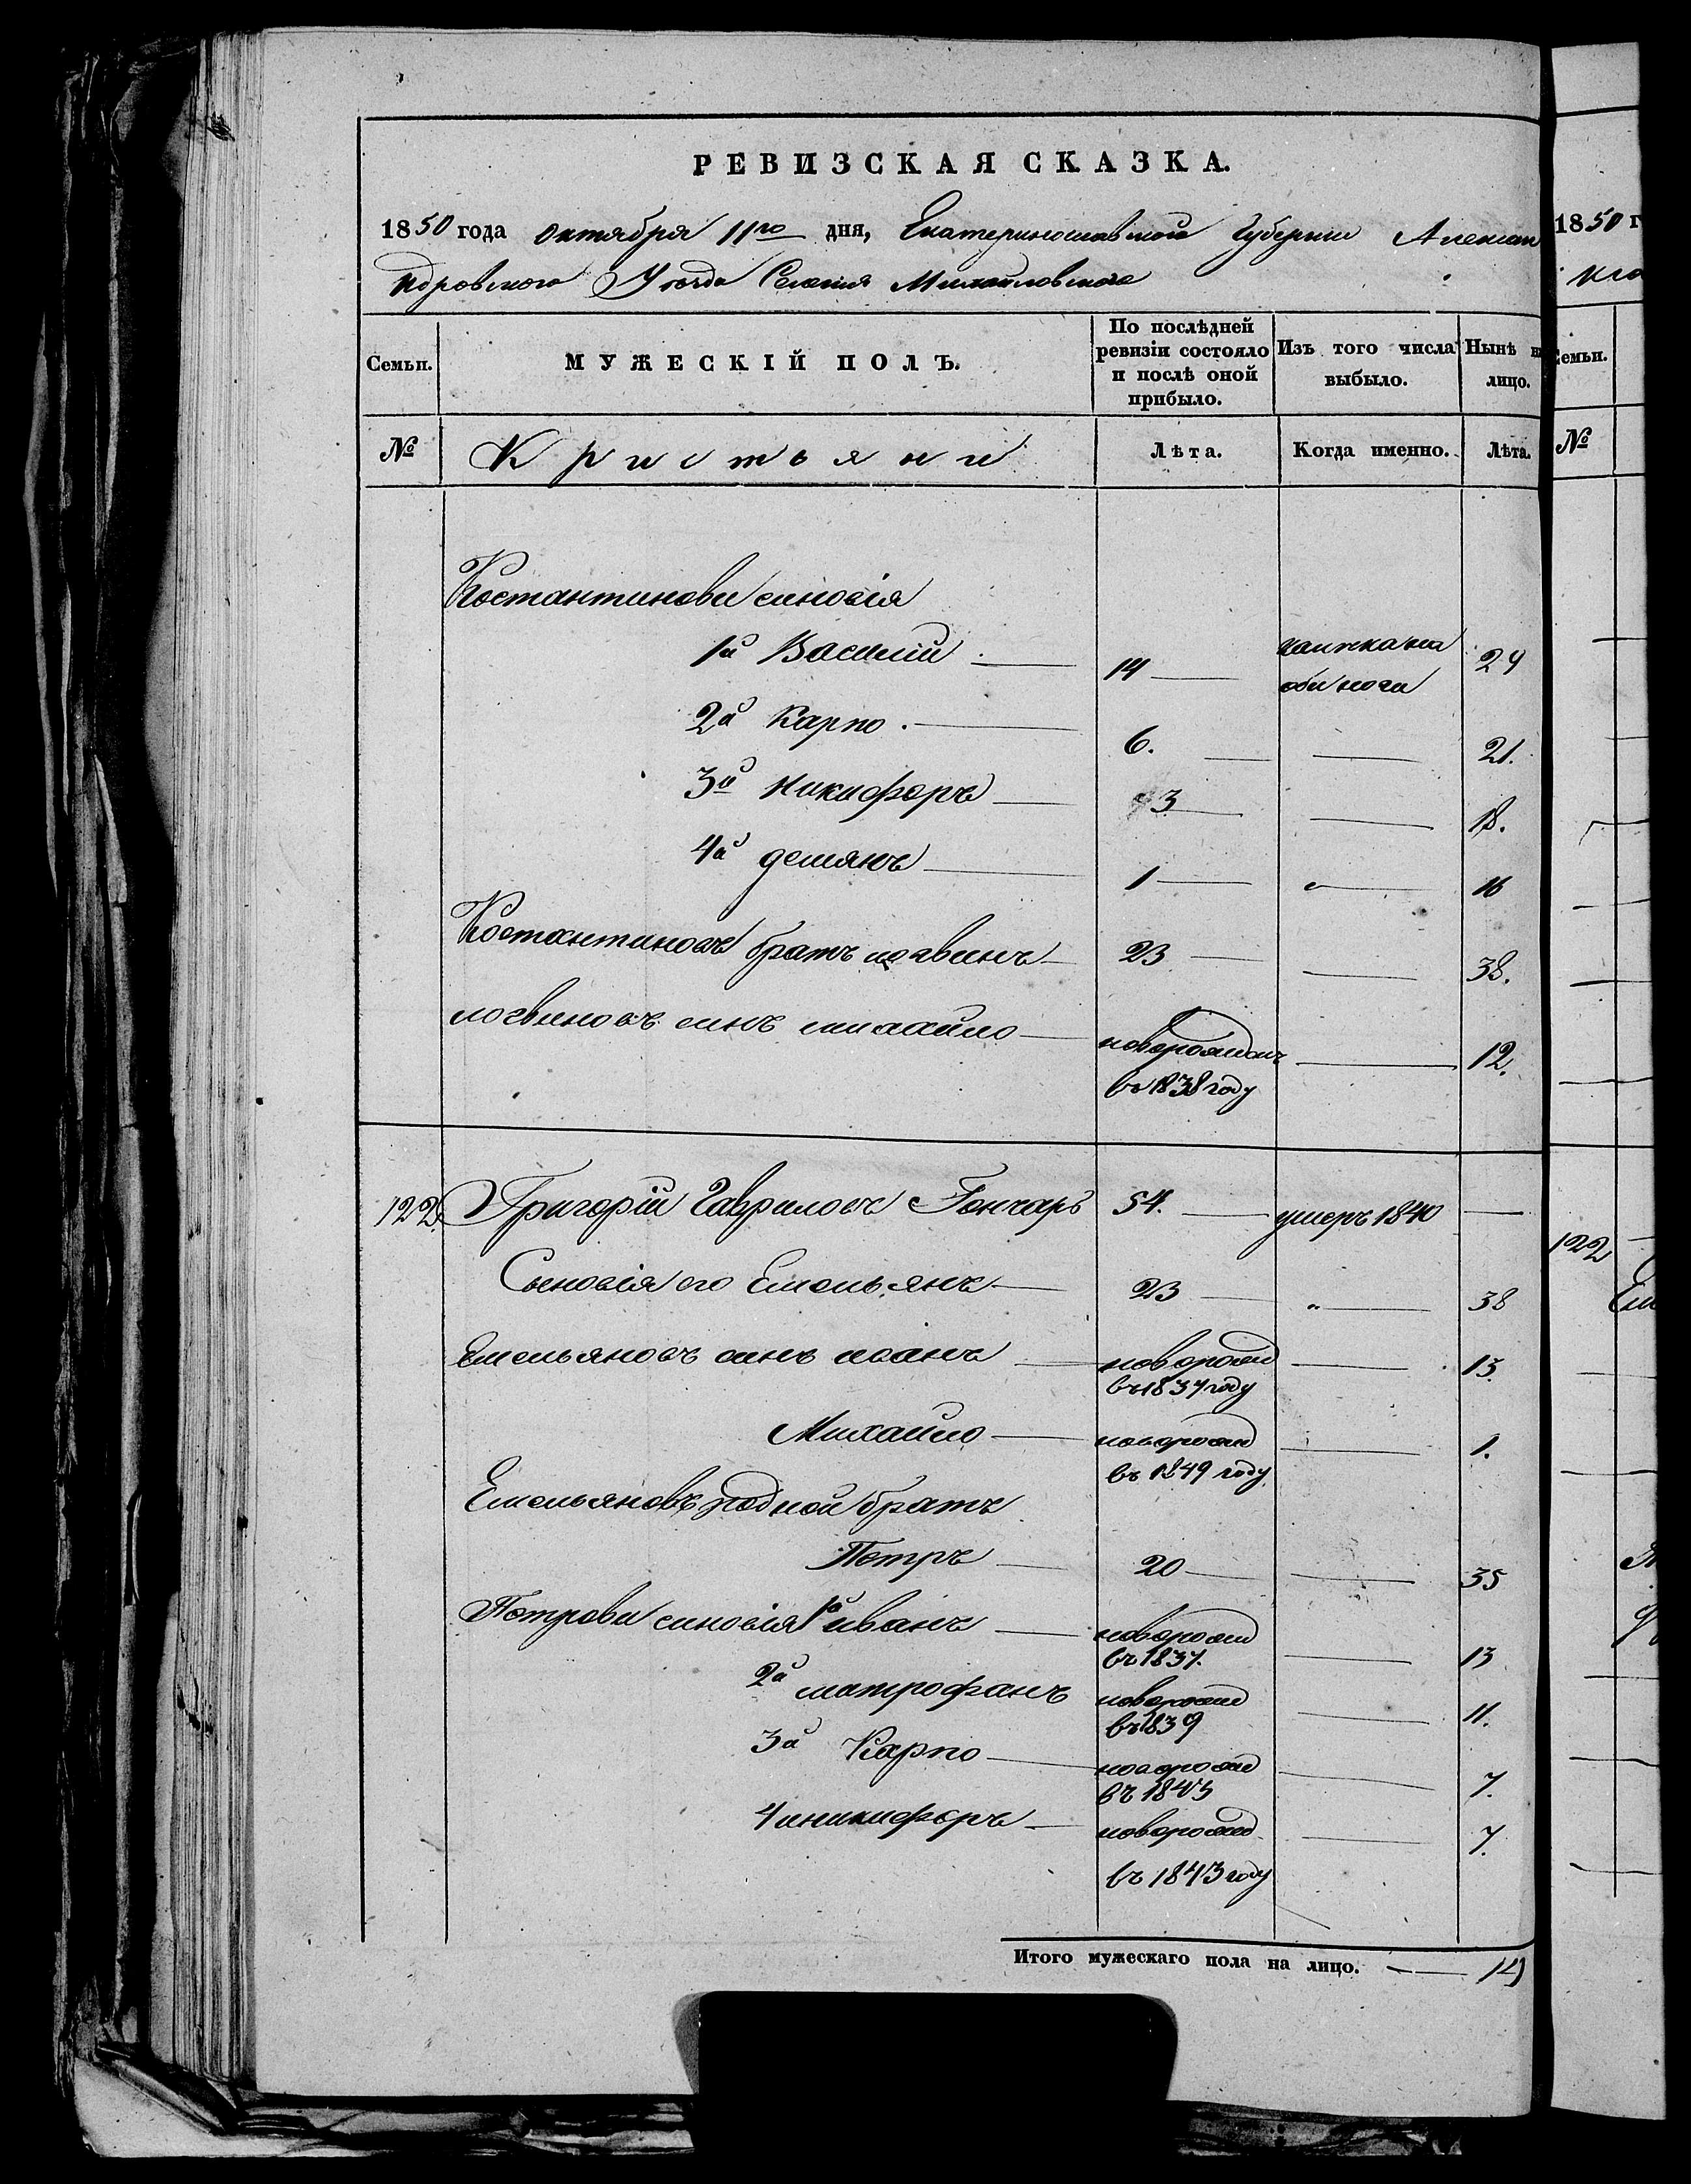 РЕВИЗСКАЯ СКАЗКА.
1850 года октября 11го дня, Екатеринославской Губернии Алексан
ндровского Уезда Селения Михайловского
Семьи. МУЖЕСКІЙ ПОЛЪ. По послѣдней ревизіи состояло и послѣ оной прибыло. Изъ того числа выбыло. Нынѣ на лицо.
№ Кристьяни Лѣта. Когда именно. Лѣта.
Костантинови синовія
1й Василий 14 24
оби ноги
2й Карпо 6. 21.
3й Никифоръ 3 18.
4й демянъ 1 16
Костантиновъ братъ логвинъ 23 38.
логвиновъ синъ михайло новорожденъ 12.
въ 1838 году
122. Григорій Гавриловъ Гончаръ 54. умеръ 1840
Сыновія его Емельянъ 23 38
Емельяновъ синъ иванъ новорожд 13.
въ 1837 году
Михайло новорожд 1.
въ 1849 году
Емельяновъ родной братъ
Петръ 20 35
Петрови синовія 1й иванъ новорожд 13
въ 1837.
2й митрофанъ новорожд 11.
въ 1839
3й Карпо новорожд 7.
въ 1843
4й никифоръ новорожд 7.
въ 1843 году
Итого мужескаго пола на лицо.
1850 г
Семьи.
№
122